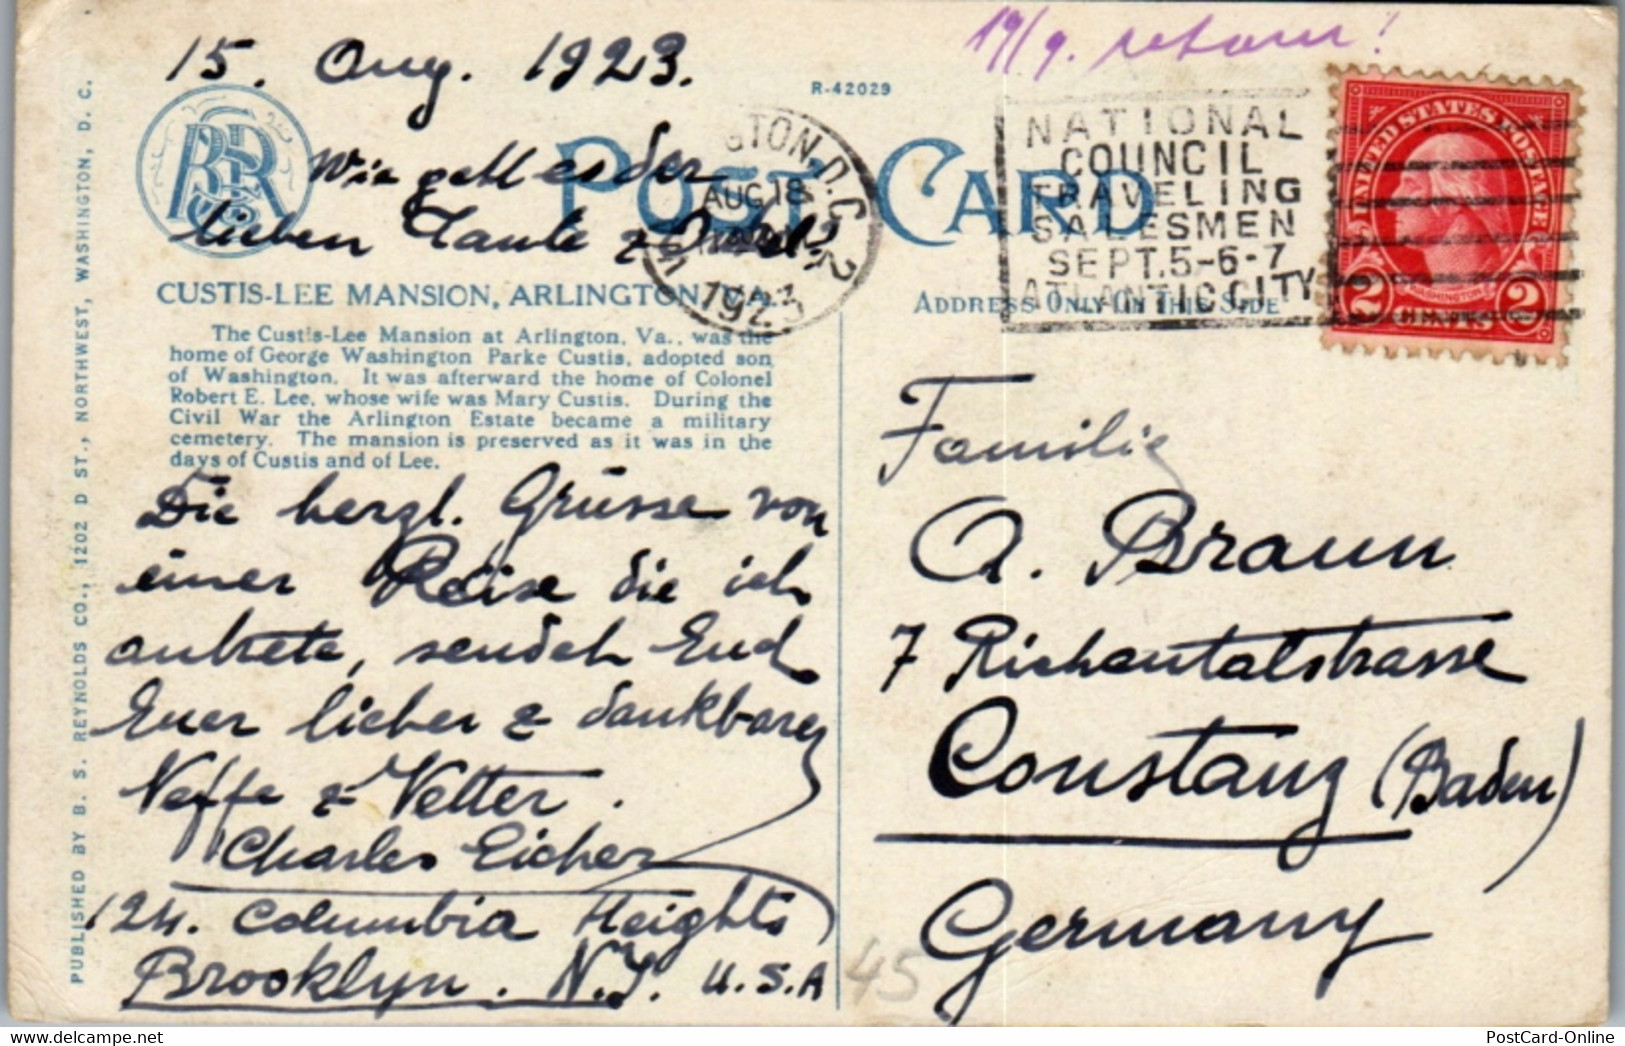 15. Aug. 1923.
19/9. retour!
R-42029
POST CARD
Wie geht es der
lieben Tante & Onkel,
WASHINGTON, D.C. 2
AUG 18
1923
NATIONAL
COUNCIL
TRAVELING
SALESMEN
SEPT. 5-6-7
ATLANTIC CITY
UNITED STATES POSTAGE
WASHINGTON
2 CENTS 2
CUSTIS-LEE MANSION, ARLINGTON, VA.
The Custis-Lee Mansion at Arlington, Va., was the
home of George Washington Parke Custis, adopted son
of Washington. It was afterward the home of Colonel
Robert E. Lee, whose wife was Mary Custis. During the
Civil War the Arlington Estate became a military
cemetery. The mansion is preserved as it was in the
days of Custis and of Lee.
ADDRESS ONLY ON THIS SIDE
Die herzl. Grüsse von
einer Reise die ich
antrete, sendet Euch
Euer lieber & dankbarer
Neffe & Vetter.
Charles Eicher
124. Columbia Heights
Brooklyn. N.Y. U.S.A
Familie
A. Braun
7 Richentalstrasse
Constanz (Baden)
Germany
45
PUBLISHED BY B. S. REYNOLDS CO., 1202 D ST., NORTHWEST, WASHINGTON, D. C.
PostCard-Online